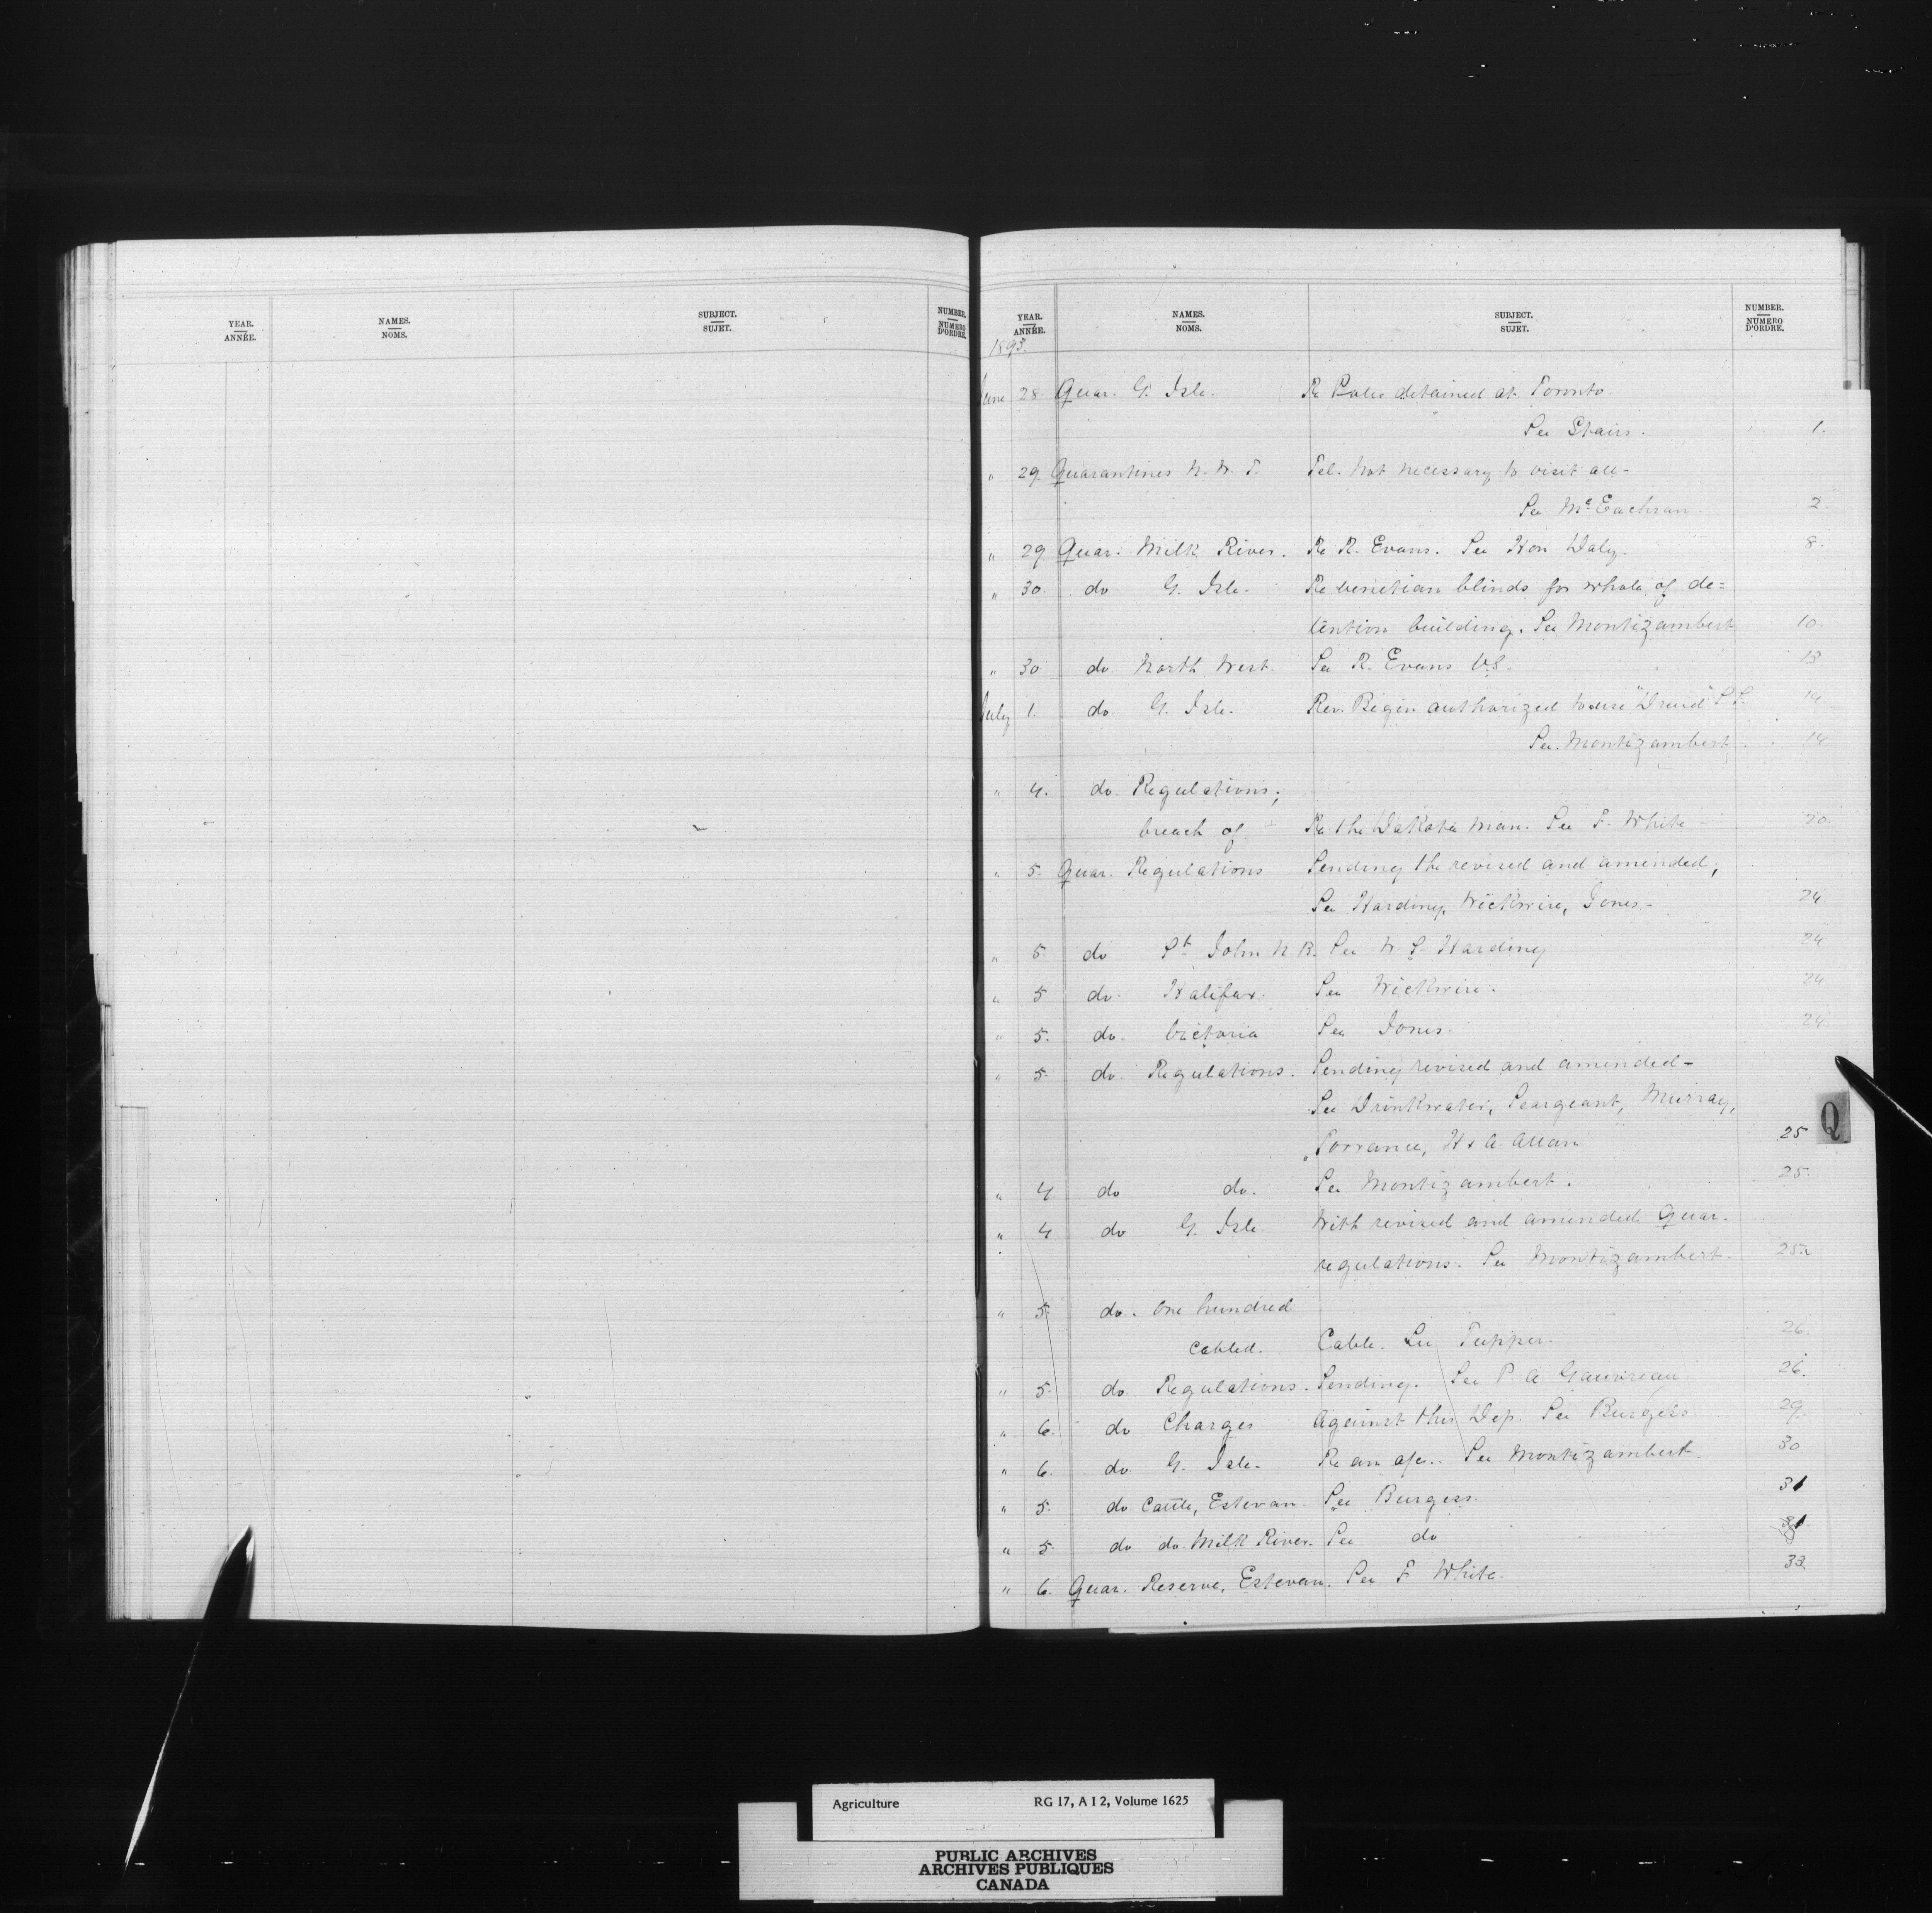 YEAR. ANNÉE. NAMES. NOMS. SUBJECT. SUJET. NUMBER. NUMERO D'ORDRE.
YEAR. ANNÉE. NAMES. NOMS. SUBJECT. SUJET. NUMBER. NUMERO D'ORDRE.
1893.
June 28. Quar. G. Isle. Re detained at Toronto.
See Stairs. 1.
" 29. Quarantines N. W. T. Tel. Not necessary to visit all-
See McEachran. 2.
" 29. Quar. Milk River. Re R. Evans. See Hon Daly. 8.
" 30. do G. Isle. Re venetian blinds for whole of de=
tention building. See Montizambert 10.
" 30 do North West. See R. Evans V.S. 13
July 1. do G. Isle. Rev. Begin authorized to use "Druid" 14
See Montizambert. 14
" 4. do. Regulations;
breach of. Re the Dakota man. See F. White - 20.
" 5. Quar. Regulations Sending the revised and amended;
See Harding, Wickwire, Jones.- 24.
" 5. do St. John N.B. See W. S. Harding 24
" 5 do. Halifax. See Wickwire. 24
" 5. do. Victoria See Jones. 24
" 5. do. Regulations. Sending revised and amended-
See Drinkwater, Seargeant, Murray,
Torrance, H & A Allan 25
" 4 do do. See Montizambert. 25.
" 4 do G. Isle With revised and amended Quar.
regulations. See Montizambert. 25.
" 5. do. One hundred
cabled. Cable. See Tupper. 26.
" 5. do. Regulations. Sending. See P. A Gauvreau 26.
" 6. do Charges Against this Dep. See Burgess 29.
" 6. do. G. Isle. Re an a/c. See Montizambert. 30
" 5. do Cattle, Estevan. See Burgess. 31
" 5. do do. Milk River. See do 31
" 6. Quar. Reserve, Estevan. See F White. 32
Q
Agriculture RG 17, A I 2, Volume 1625
PUBLIC ARCHIVES
ARCHIVES PUBLIQUES
CANADA